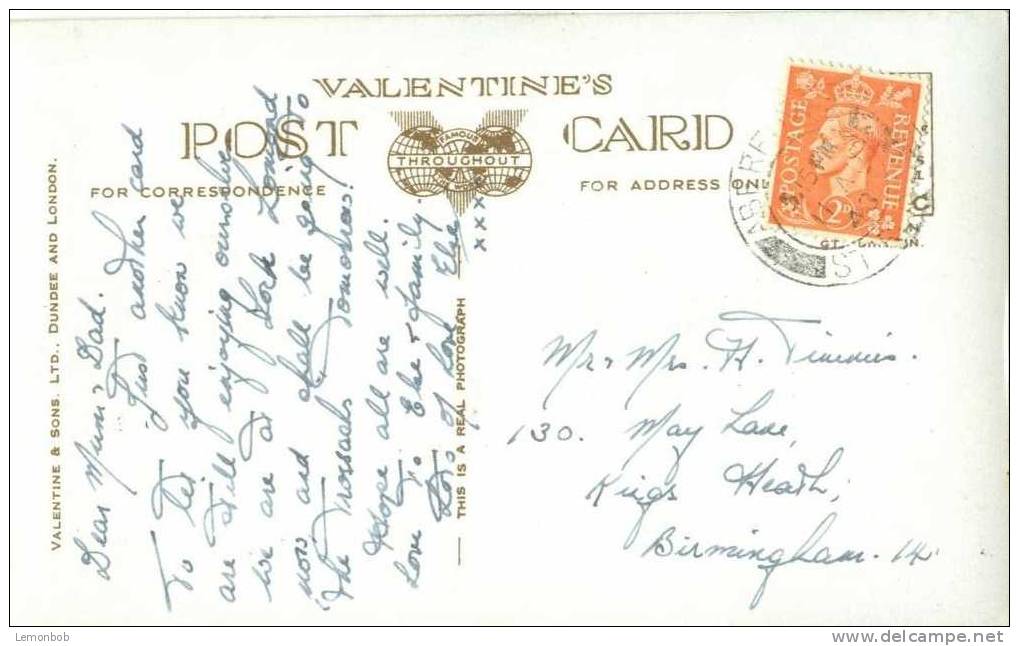 VALENTINE'S
POST CARD
FAMOUS
THROUGHOUT
THE WORLD
FOR CORRESPONDENCE
FOR ADDRESS ON
VALENTINE & SONS. LTD., DUNDEE AND LONDON.
THIS IS A REAL PHOTOGRAPH
POSTAGE
REVENUE
2D
ABERF
PM
ST
Dear Mum & Dad.
Just another card
To let you know we
are still enjoying ourselves
we are at Loch Lomond
now and shall be going to
the Trossachs Tomorrow!
Hope all are well.
Love To Else & family.
Lots of Love Elsie
xxxx
Mr & Mrs. H. Timmis.
130. May Lane,
Kings Heath,
Birmingham. 14.
Lemonbob
www.delcampe.net